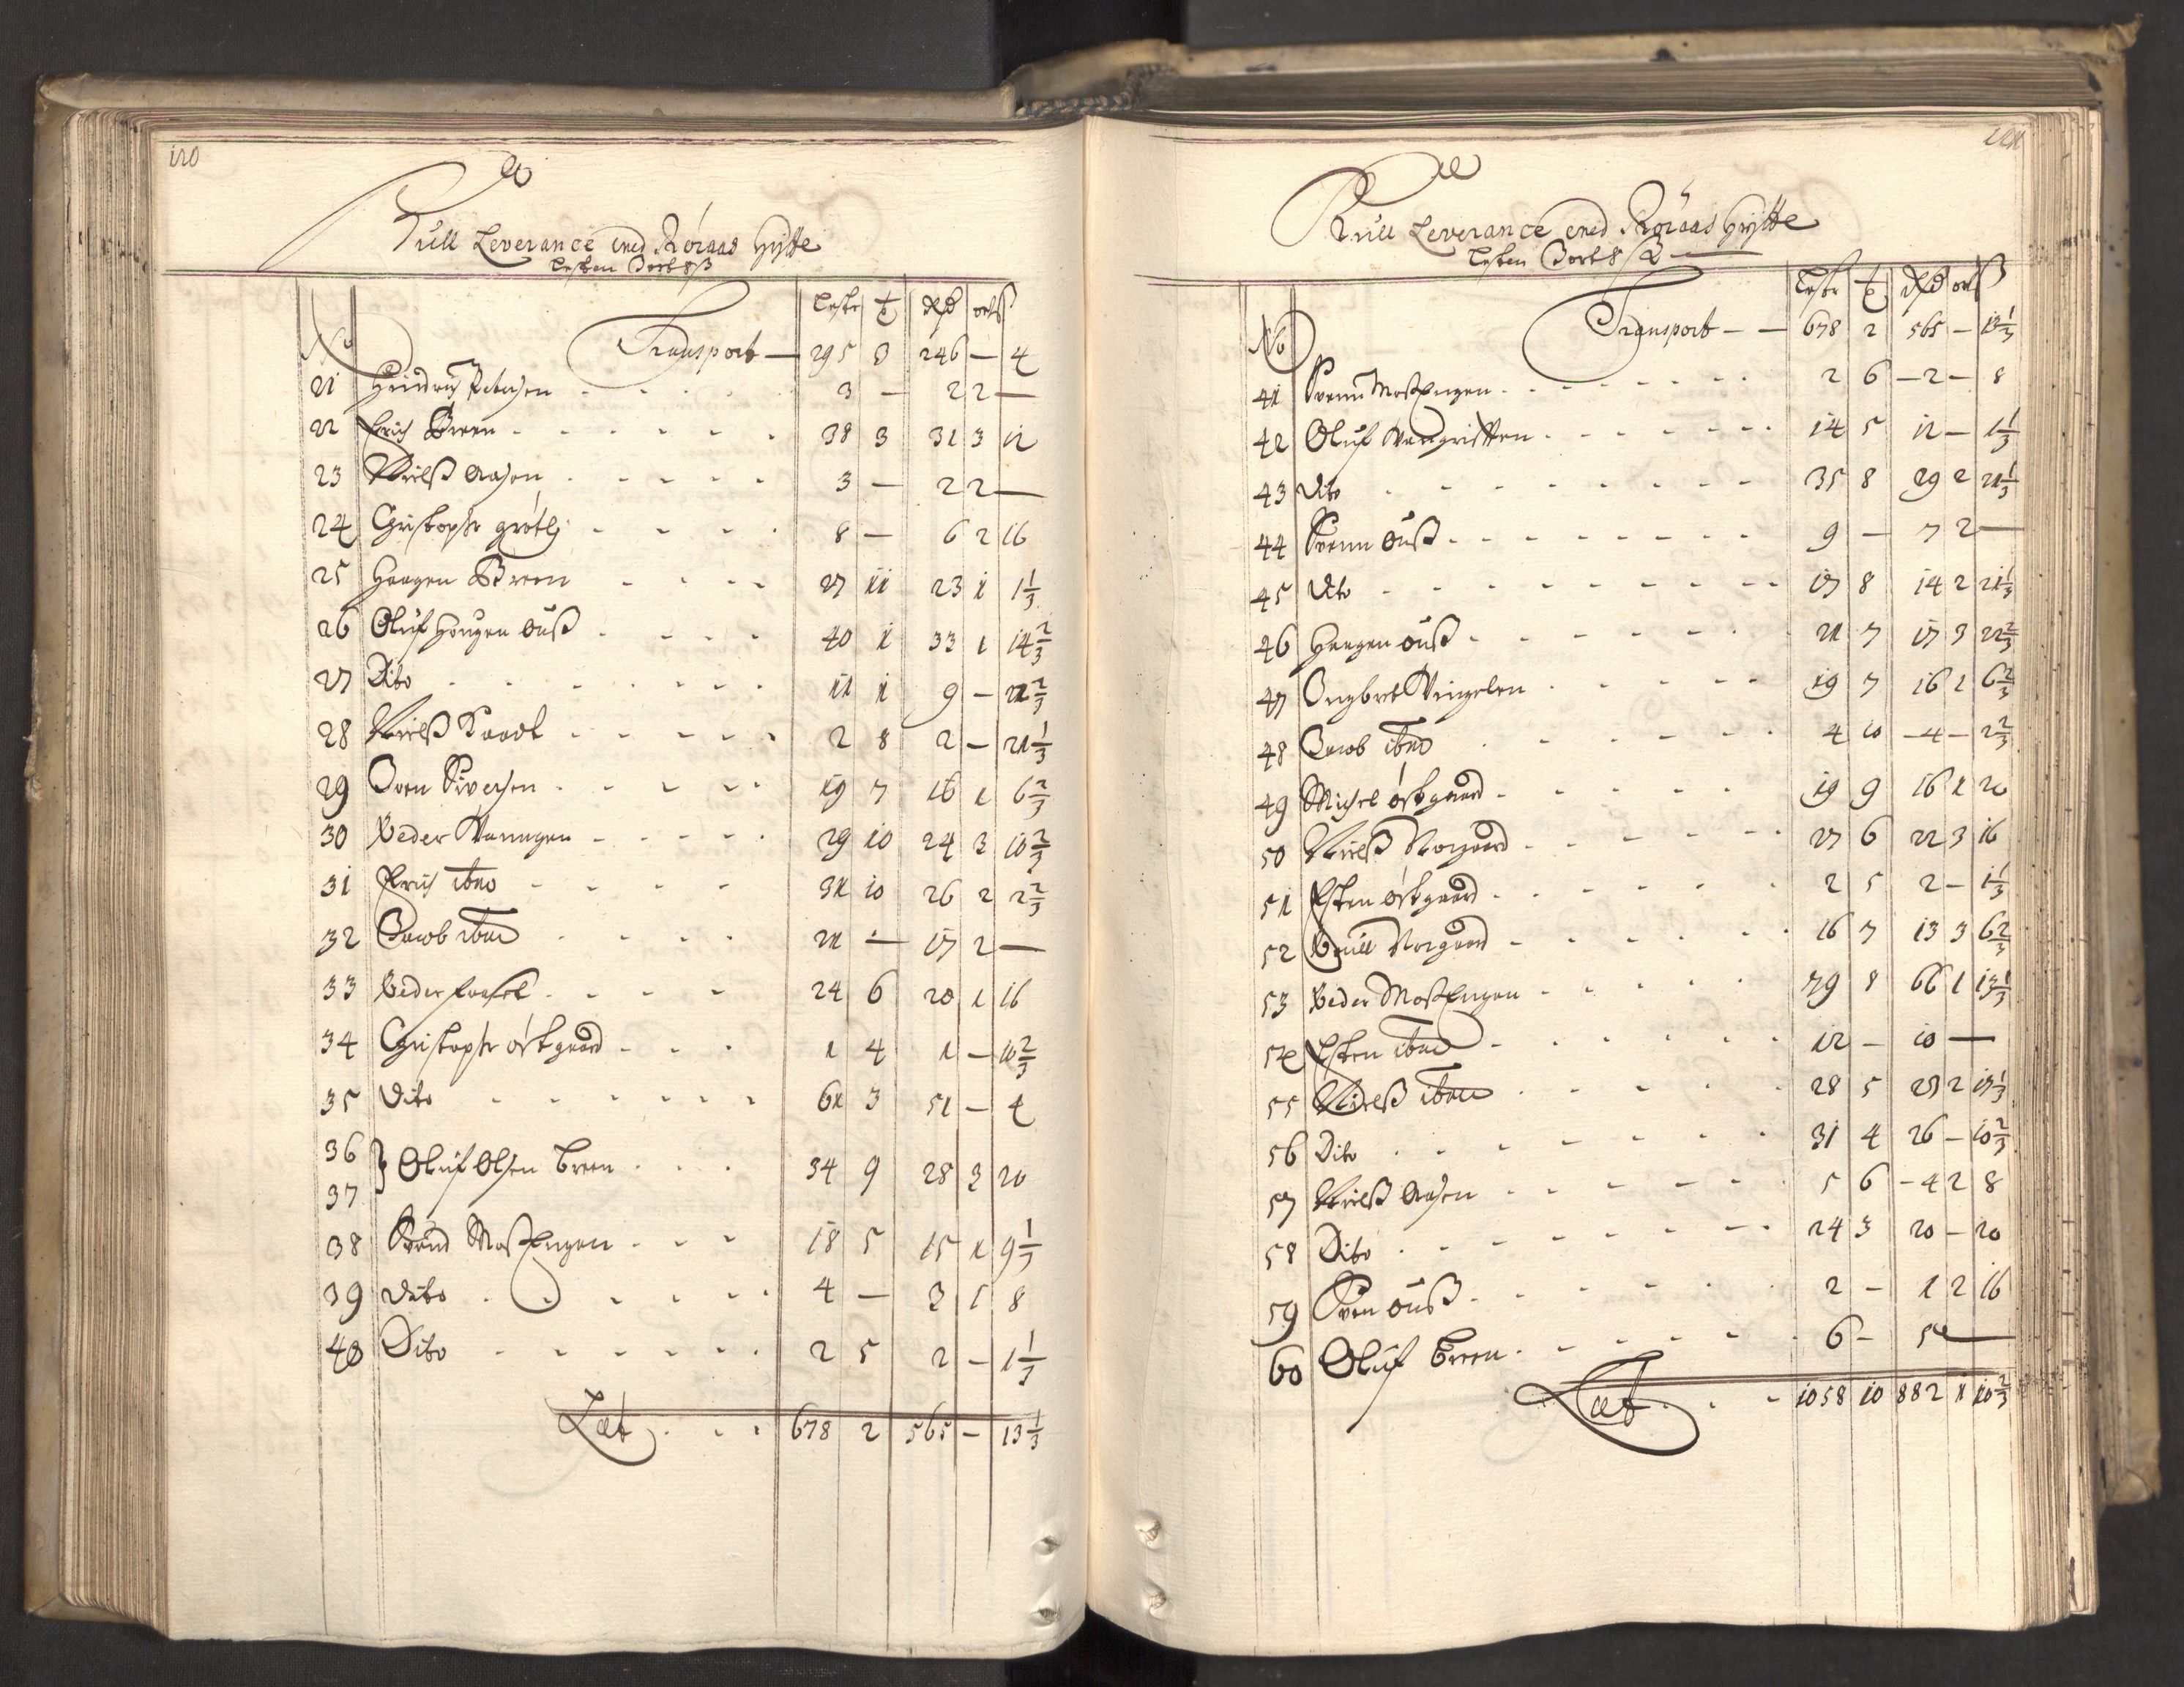 120
Kull Leverance ved Röraas Hytte
Lesten 3 ort 8 ß
No Lester t Rdr ort ß
Transport — 295 3 246 — 4
21 Hendrich 3 — 2 2 —
22 Erich Breen 38 3 31 3 12
23 Nielß Aasen 3 — 2 2 —
24 Christopher Grötli 8 — 6 2 16
25 Haagen Breen 27 11 23 1 1 1/3
26 Oluf Hougen öuß 40 1 33 1 14 2/3
27 Dito 11 1 9 — 22 2/3
28 Nielß 2 8 2 — 21 1/3
29 Joen Siversen 19 7 16 1 6 2/3
30 Peder Waangen 29 10 24 3 10 2/3
31 Erich ibid 31 10 26 2 2 2/3
32 Jacob ibid 21 — 17 2 —
33 Peder 24 6 20 1 16
34 Christopher östgaard 1 4 1 — 10 2/3
35 Dito 61 3 51 — 4
36
37 } Oluf Olsen Breen 34 9 28 3 20
38 Svend MoßEngen 18 5 15 1 9 1/3
39 Dito 4 — 3 1 8
40 Dito 2 5 2 — 1 1/3
Lat 678 2 565 — 13 1/3
121
Kull Leverance ved Röraas Hytte
Lesten 3 ort 8 ß
No Lester t Rdr ort ß
Transport — 678 2 565 — 13 1/3
41 Svenn MoßEngen 2 6 — 2 — 8
42 Oluf Vangrøften 14 5 12 — 1 1/3
43 Dito 35 8 29 2 21 1/3
44 Svenn öuß 9 — 7 2 —
45 Dito 17 8 14 2 21 1/3
46 Haagen öuß 21 7 17 3 22 2/3
47 Ingebret Vingelen 19 7 16 1 6 2/3
48 Jacob ibid 4 10 — 4 — 2 2/3
49 Michel östgaard 19 9 16 1 20
50 Nielß Norgaard 27 6 22 3 16
51 Esten östgaard 2 5 2 — 1 1/3
52 Poull Norgaard 16 7 13 3 6 2/3
53 Peder MoßEngen 79 8 66 1 13 1/3
54 Esten ibid 12 — 10 —
55 Nielß ibid 28 5 23 2 17 1/3
56 Dito 31 4 26 — 10 2/3
57 Nielß Aasen 5 6 — 4 2 8
58 Dito 24 3 20 — 20
59 Sven öuß 2 — 1 2 16
60 Oluf Breen 6 — 5 —
Lat 1058 10 882 1 10 2/3